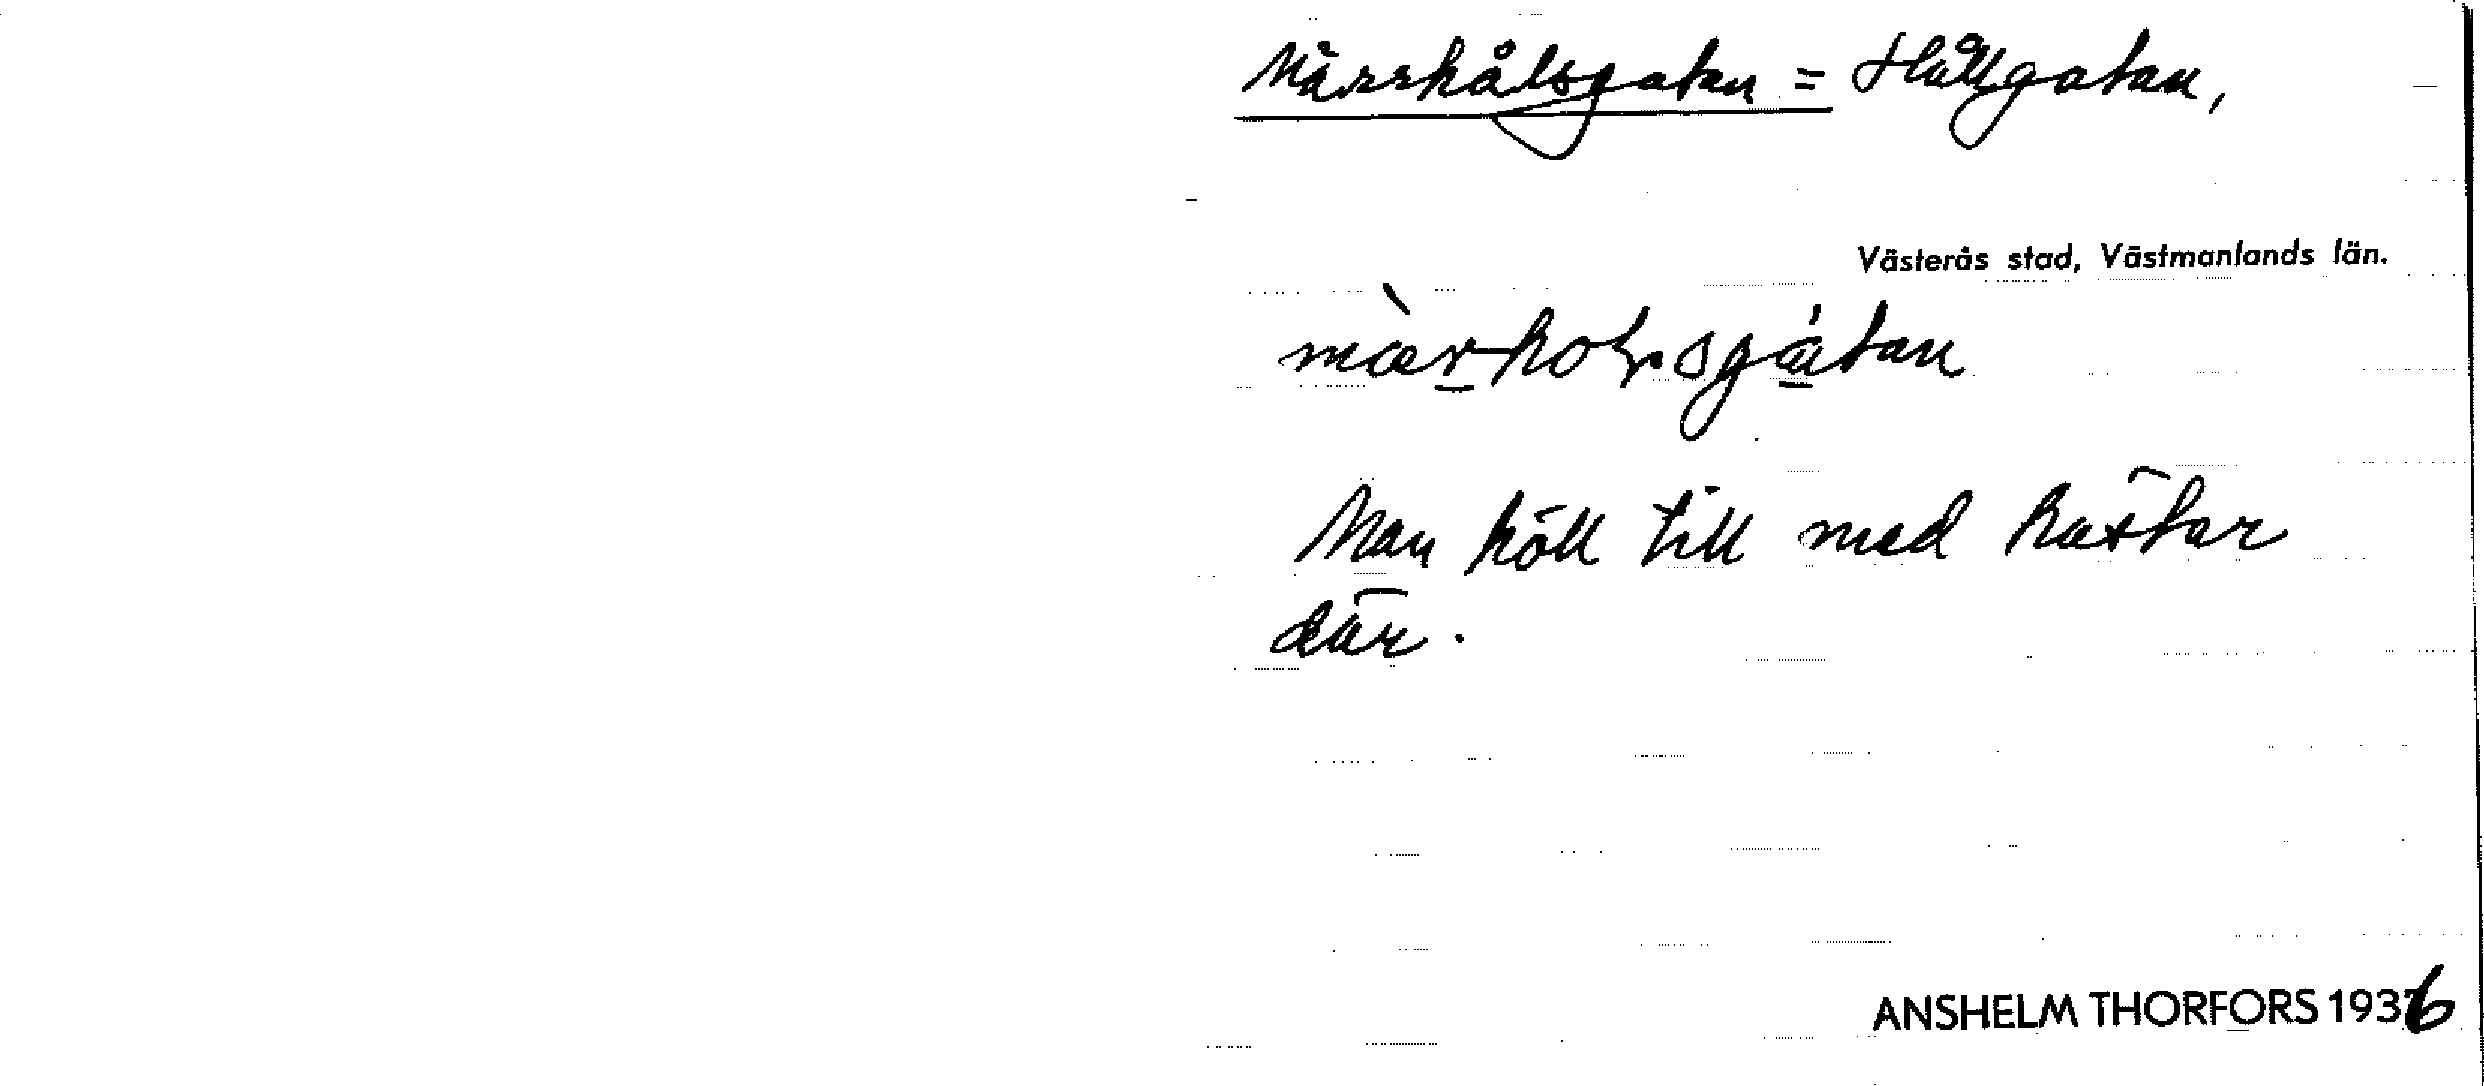 Märrhålsgatan = Hållgatan,
Västerås stad, Västmanlands län.
Man höll till med hästar
där.
ANSHELM THORFORS 1936